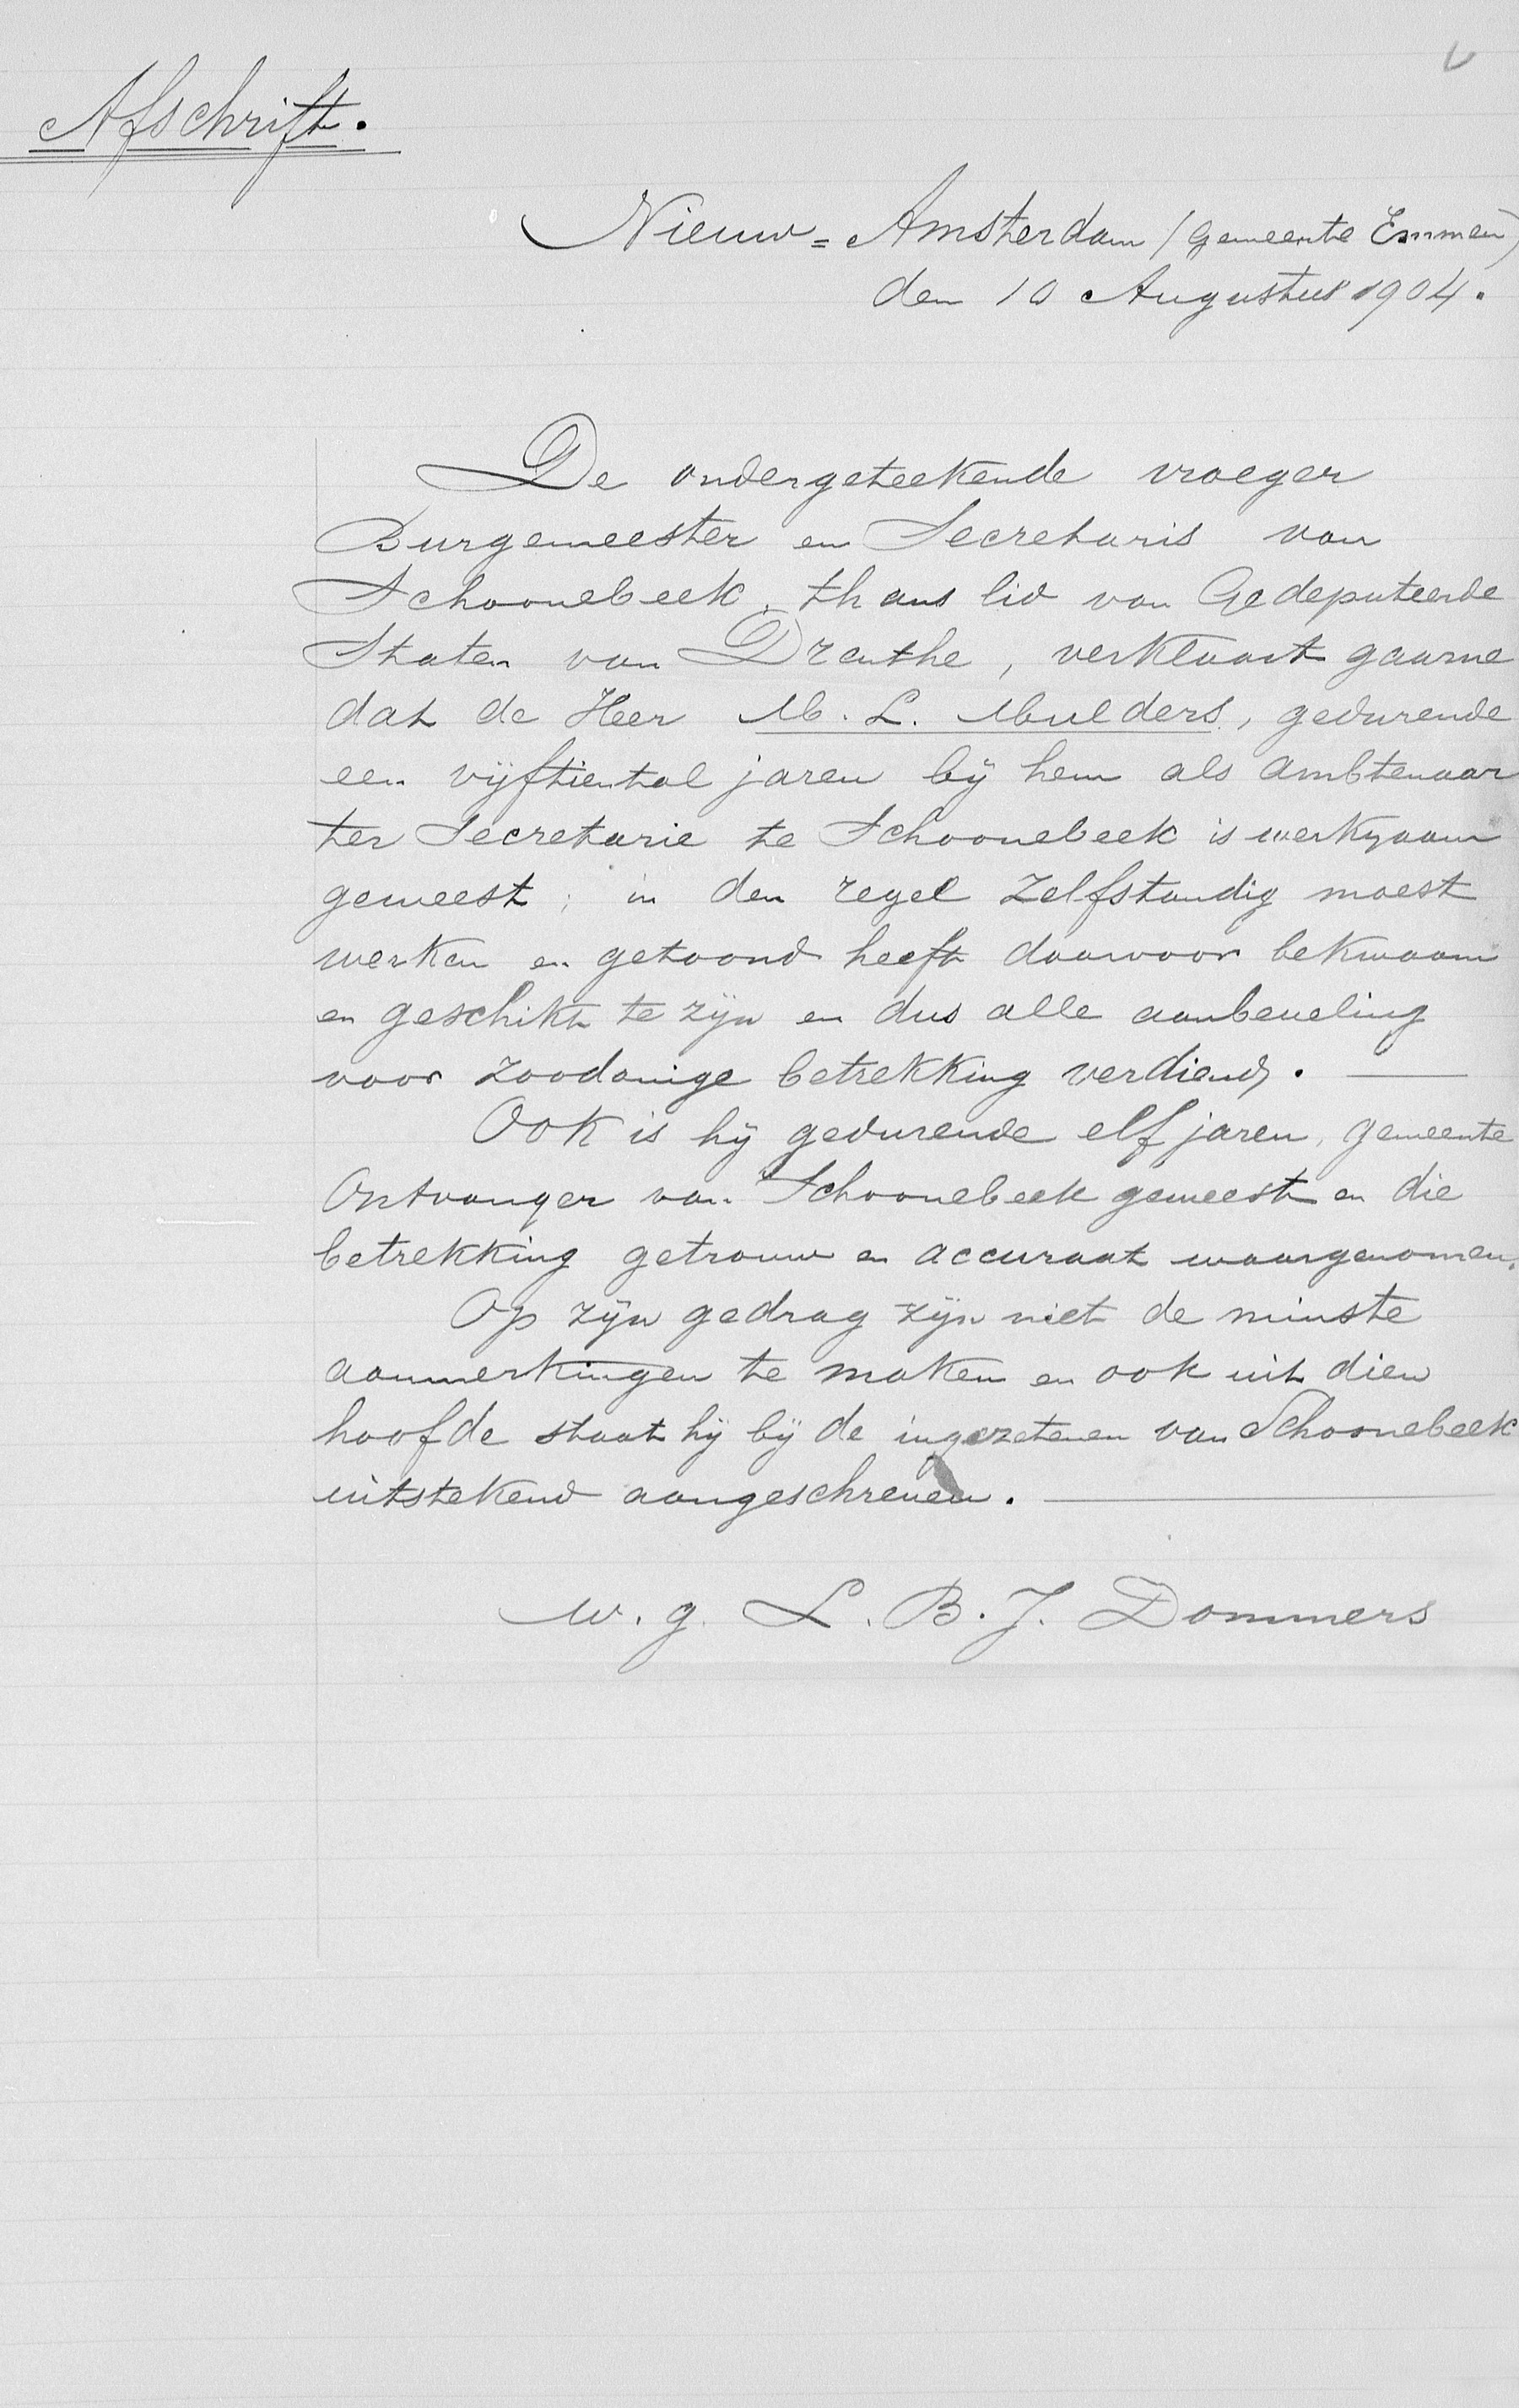 Afschrift.
Nieuw=Amsterdam (gemeente Emmen)
den 10 Augustus 1904.
De ondergeteekende vroeger
Burgemeester en Secretaris van
Schoonebeek, thans lid van Gedeputeerde
Staten van Drenthe, verklaart gaarne
dat de Heer M. L. Mulders, gedurende
een vijftiental jaren bij hem als ambtenaar
ter Secretarie te Schoonebeek is werkzaam
geweest; in den regel zelfstandig moest
werken en getoond heeft daarvoor bekwaam
en geschikt te zijn en dus alle aanbeveling
voor zoodanige betrekking verdiend.
Ook is hij gedurende elf jaren, gemeente
Ontvanger van Schoonebeek geweest en die
betrekking getrouw en accuraat waargenomen.
Op zijn gedrag zijn niet de minste
aanmerkingen te maken en ook uit dien
hoofde staat hij bij de ingezetenen van Schoonebeek
uitstekend aangeschreven.
w. g. L. B. J. Dommers